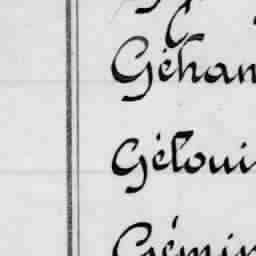 Géhan
Géloui
Gémin